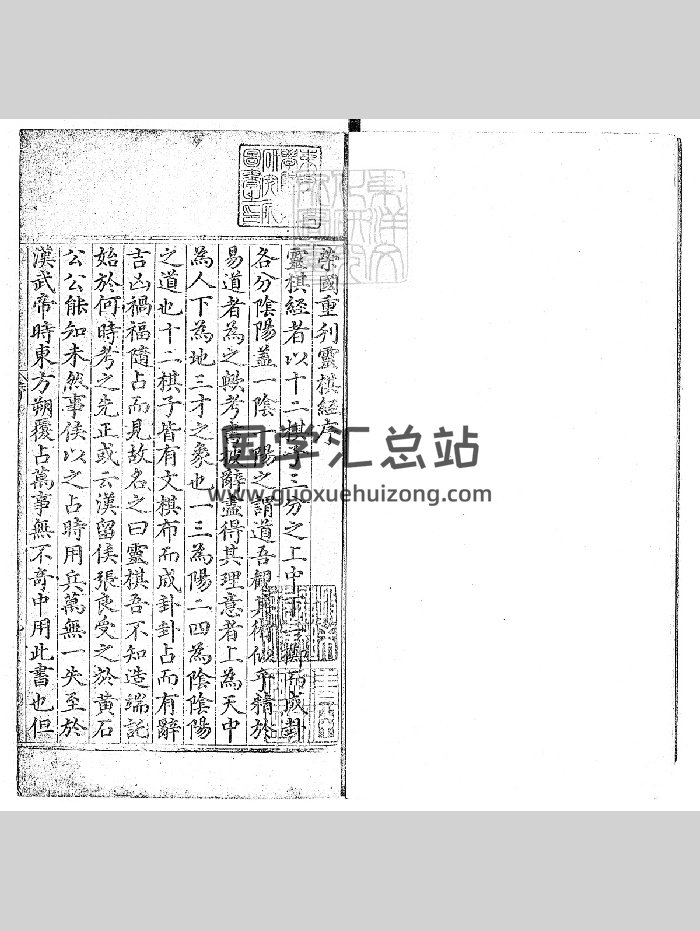 榮國重刋靈棋經序
靈棋經者以十二棋子三分之上中下三擲而成卦
各分陰陽蓋一陰一陽之謂道吾觀其術似乎精於
易道者為之歟考言披辭盡得其理意者上為天中
為人下為地三才之象也一三為陽二四為陰陰陽
之道也十二棋子皆有文棋布而成卦卦占而有辭
吉凶禍福隨占而見故名之曰靈棋吾不知造端託
始於何時考之先正或云漢留侯張良受之於黃石
公公能知未然事侯以之占時用兵萬無一失至於
漢武帝時東方朔覆占萬事無不奇中用此書也但
国学汇总站
www.guoxuehuizong.com